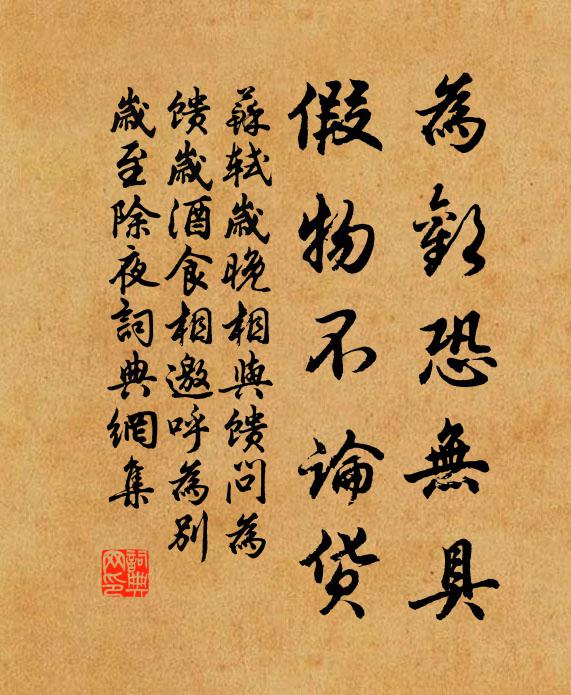 為歡恐無具
假物不論貨
蘇軾歲晚相與饋問為
饋歲酒食相邀呼為別
歲至除夜詞典網集
詞典
网印